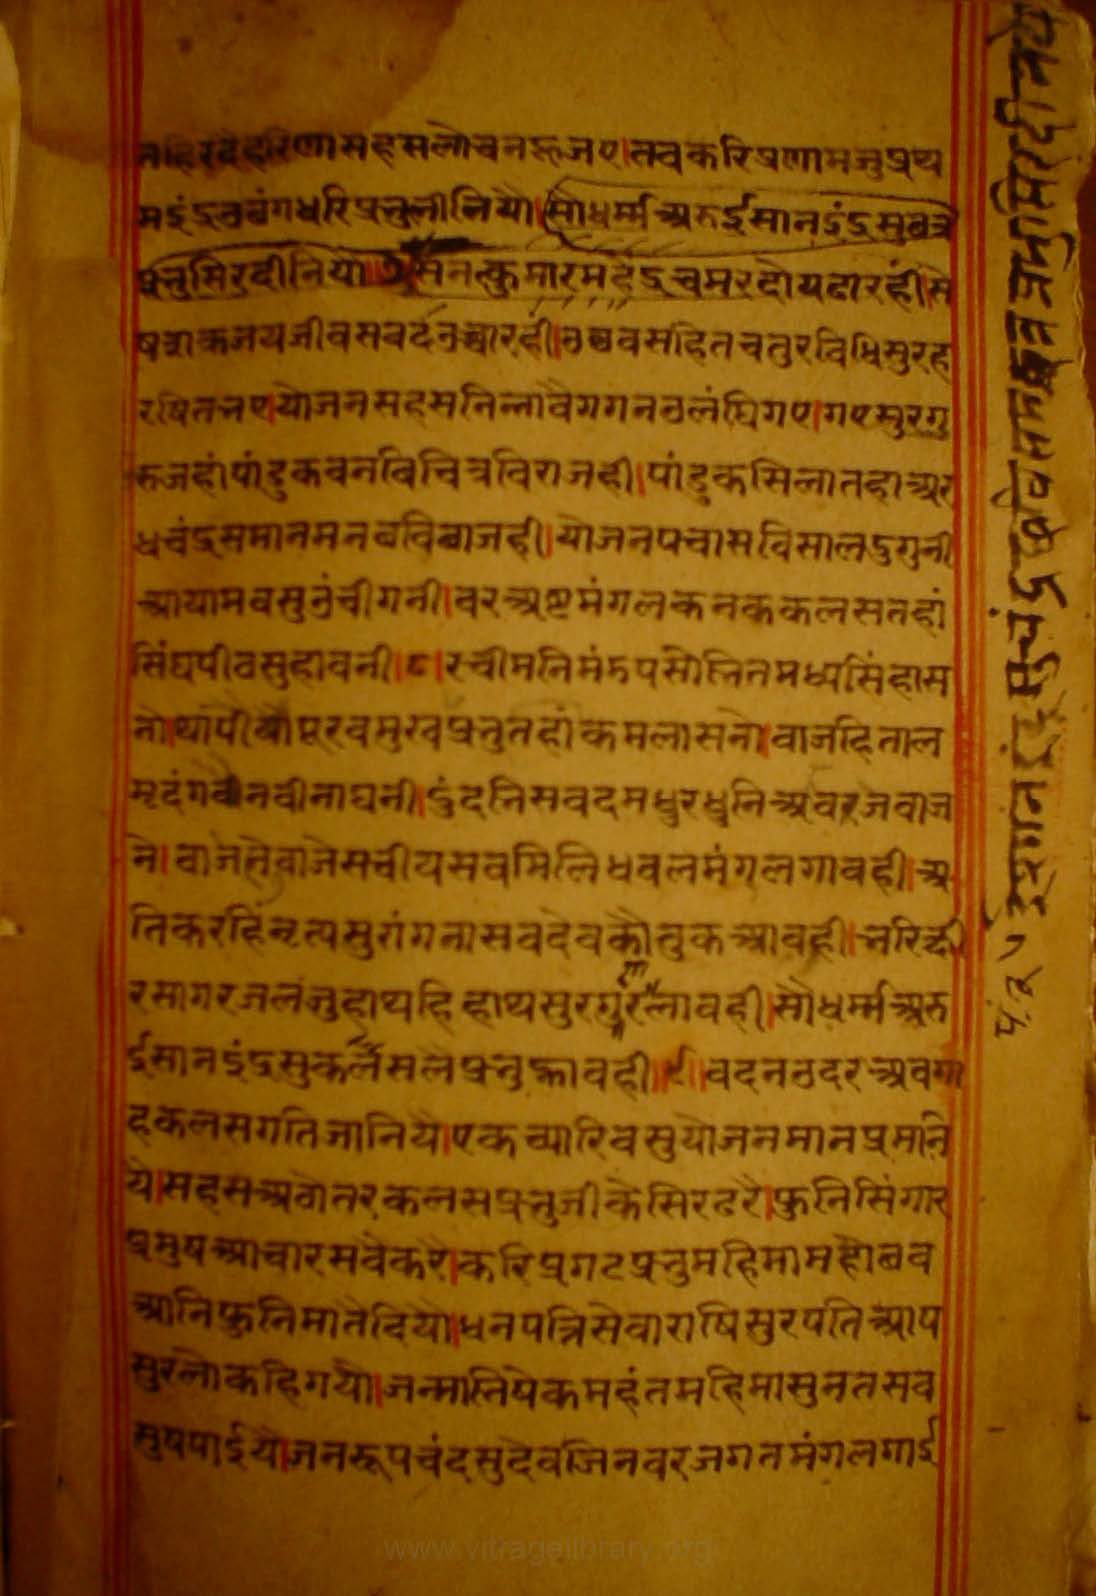 नहिरदैहरिणासहसलोचनहूजए।तवकरिप्रणामजुप्रथ
मइंद्रउछंगधरिप्रभुलीनियौ।सौधर्म्मअरुईसानइंद्रसुछत्र
प्रभुसिरदीनियो।७सनत्कुमारमहेंद्रचमरदोयढारहीं।से
षशक्रजयजीवसबदउच्चारही।उछवसहितचतुरविधिसुरह
रषितभए।योजनसहसनिन्नावैगगनउलंघिगए।गएसुरगु
रुजहांपांडुकवनविचित्रविराजही।पांडुकसिलातहाअर
धचंद्रसमानमनछविछाजही।योजनपचासविसालदुगुनी
आयामवसुउंचीगनी।वरअष्टमंगलकनककलसतहां
सिंघपीठसुहावनी।८।रचीमनिमंडपसोभितमध्यसिंहास
नो।थापौयौपूरवमुखप्रभुतहांकमलासनो।वाजहिताल
मृदंगवैनवीनाघनी।दुंदभिसवदमधुरधुनिअवरजेवाज
ने।वाजैतैवाजेसचीयसवमिलिधवलमंगलगावही।अ
तिकरहिंनृत्यसुरांगनासवदेवकौतुकआवही।भरिछी
रसागरजलजुहाथहिहाथसुरगुरल्यावही।सौधर्म्मअरु
ईसानइंद्रसुकलसलेप्रभुन्हावही।९।वदनउदरअवगा
हकलसगतिजानियै।एकच्यारिवसुयोजनमानप्रमानि
ये।सहसअठोतरकलसप्रभुजीकेसिरढरै।फुनिसिंगार
प्रमुषआचारसवैकरै।करिप्रगटप्रभुमहिमामहोछव
आनिफुनिमातैदियो।धनपत्तिसेवाराषिसुरपतिआप
सुरलोकहिगयो।जन्माभिषेकमहंतमहिमासुनतसव
सुषपाईयो।जनरूपचंदसुदेवजिनवरजगतमंगलगाई
www.vitragellibrary.org